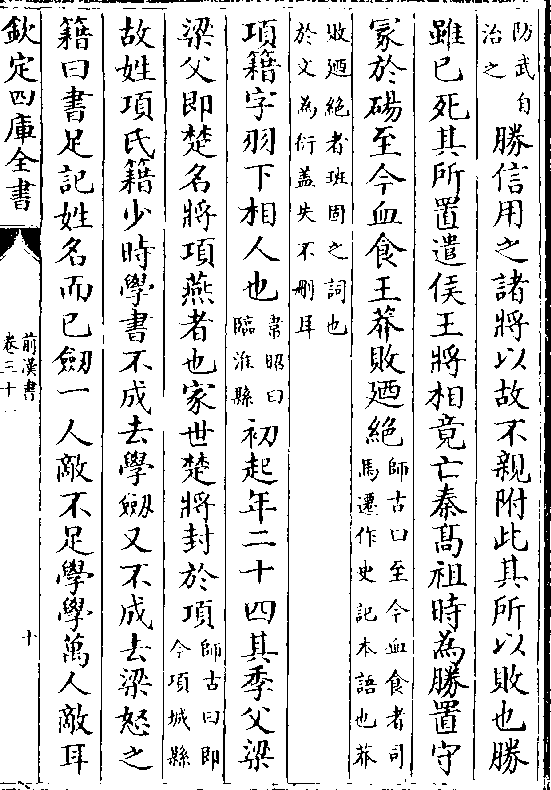 防武自
治之
勝信用之諸將以故不親附此其所以敗也勝
雖已死其所置遣侯王將相竟亡秦髙祖時為勝置守
冡於碭至今血食王莽敗廼絶
師古曰至今血食者司
馬遷作史記本語也莽
敗廼絶者班固之詞也
於文為衍盖失不刪耳
項籍字羽下相人也
韋昭曰
臨淮縣
初起年二十四其季父梁
梁父即楚名將項燕者也家世楚將封於項
師古曰即
今項城縣
故姓項氏籍少時學書不成去學劒又不成去梁怒之
籍曰書足記姓名而已劒一人敵不足學學萬人敵耳
欽定四庫全書
前漢書
卷三十一
十